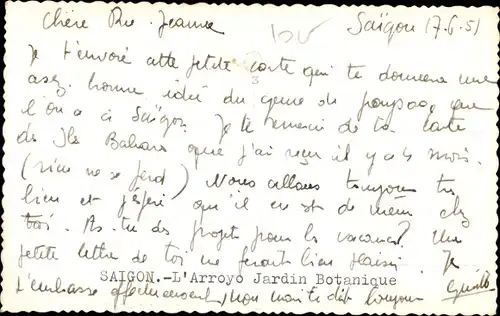 Chère Pie-Jeanne Saïgon 17.6.51
Je t'envoie cette petite carte qui te donnera une
assez bonne idée du genre de paysage que
l'on a à Saïgon. Je te remercie de ta carte
des Iles Bahamas que j'ai reçue il y a 4 mois.
(rien ne se perd) Nous allons toujours très
bien et j'espère qu'il en est de même chez
toi. As-tu des projets pour les vacances? Une
petite lettre de toi me ferait bien plaisir. Je
SAIGON.-L'Arroyo Jardin Botanique
t'embrasse affectueusement, mon mari te dit bonjour